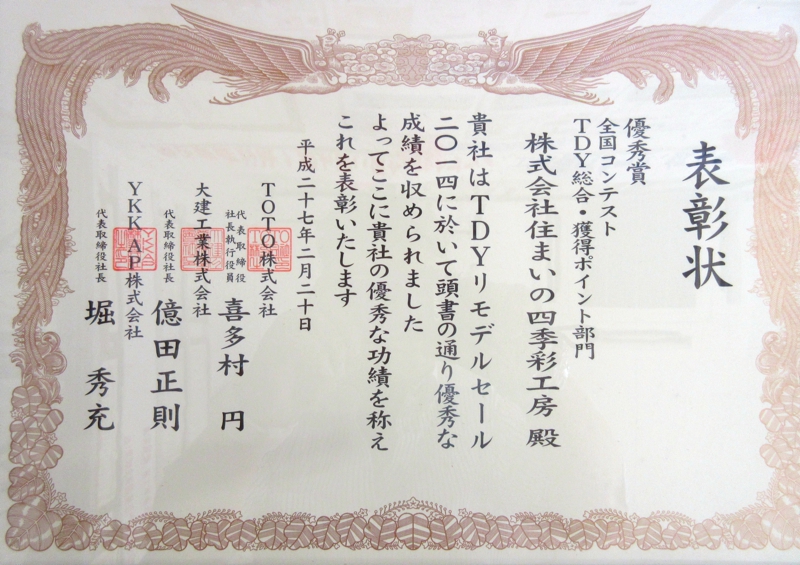 表彰状
優秀賞
全国コンテスト
TDY総合・獲得ポイント部門
株式会社住まいの四季彩工房 殿
貴社はTDYリモデルセール
二〇一四に於いて頭書の通り優秀な
成績を収められました
よってここに貴社の優秀な功績を称え
これを表彰いたします
平成二十七年二月二十日
TOTO株式会社
代表取締役
社長執行役員
喜多村 円
大建工業株式会社
代表取締役社長
億田正則
YKK AP株式会社
代表取締役社長
堀 秀充